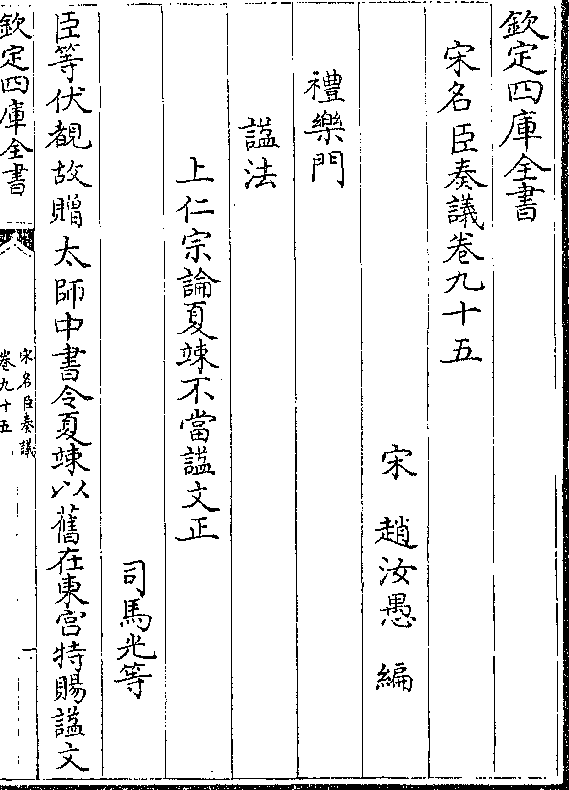 欽定四庫全書
宋名臣奏議卷九十五
宋 趙汝愚 編
禮樂門
諡法
上仁宗論夏竦不當諡文正
司馬光等
臣等伏覩故贈太師中書令夏竦以舊在東宮特賜諡文
欽定四庫全書
宋名臣奏議
卷九十五
一